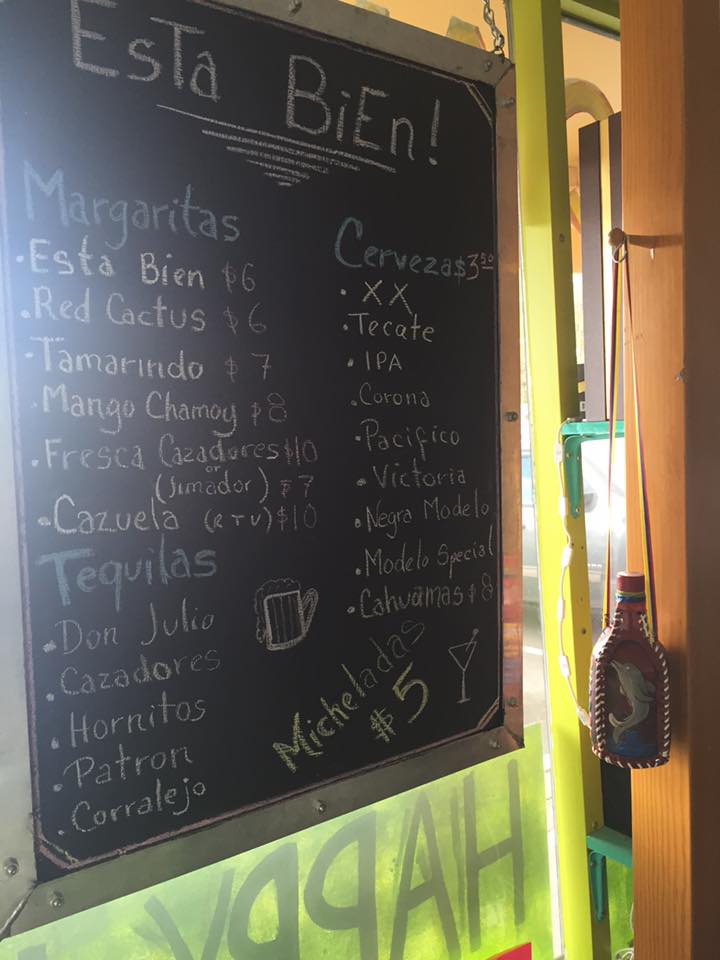 Esta Bien!
Margaritas
• Esta Bien $6
• Red Cactus $6
• Tamarindo $7
• Mango Chamoy $8
• Fresca Cazadores $10
or
(Jimador) $7
• Cazuela (RTV) $10
Tequilas
• Don Julio
• Cazadores
• Hornitos
• Patron
• Corralejo
Cervezas $3.50
• XX
• Tecate
• IPA
• Corona
• Pacifico
• Victoria
• Negra Modelo
• Modelo Special
• Cahuamas $8
Micheladas
$5
HAPPY